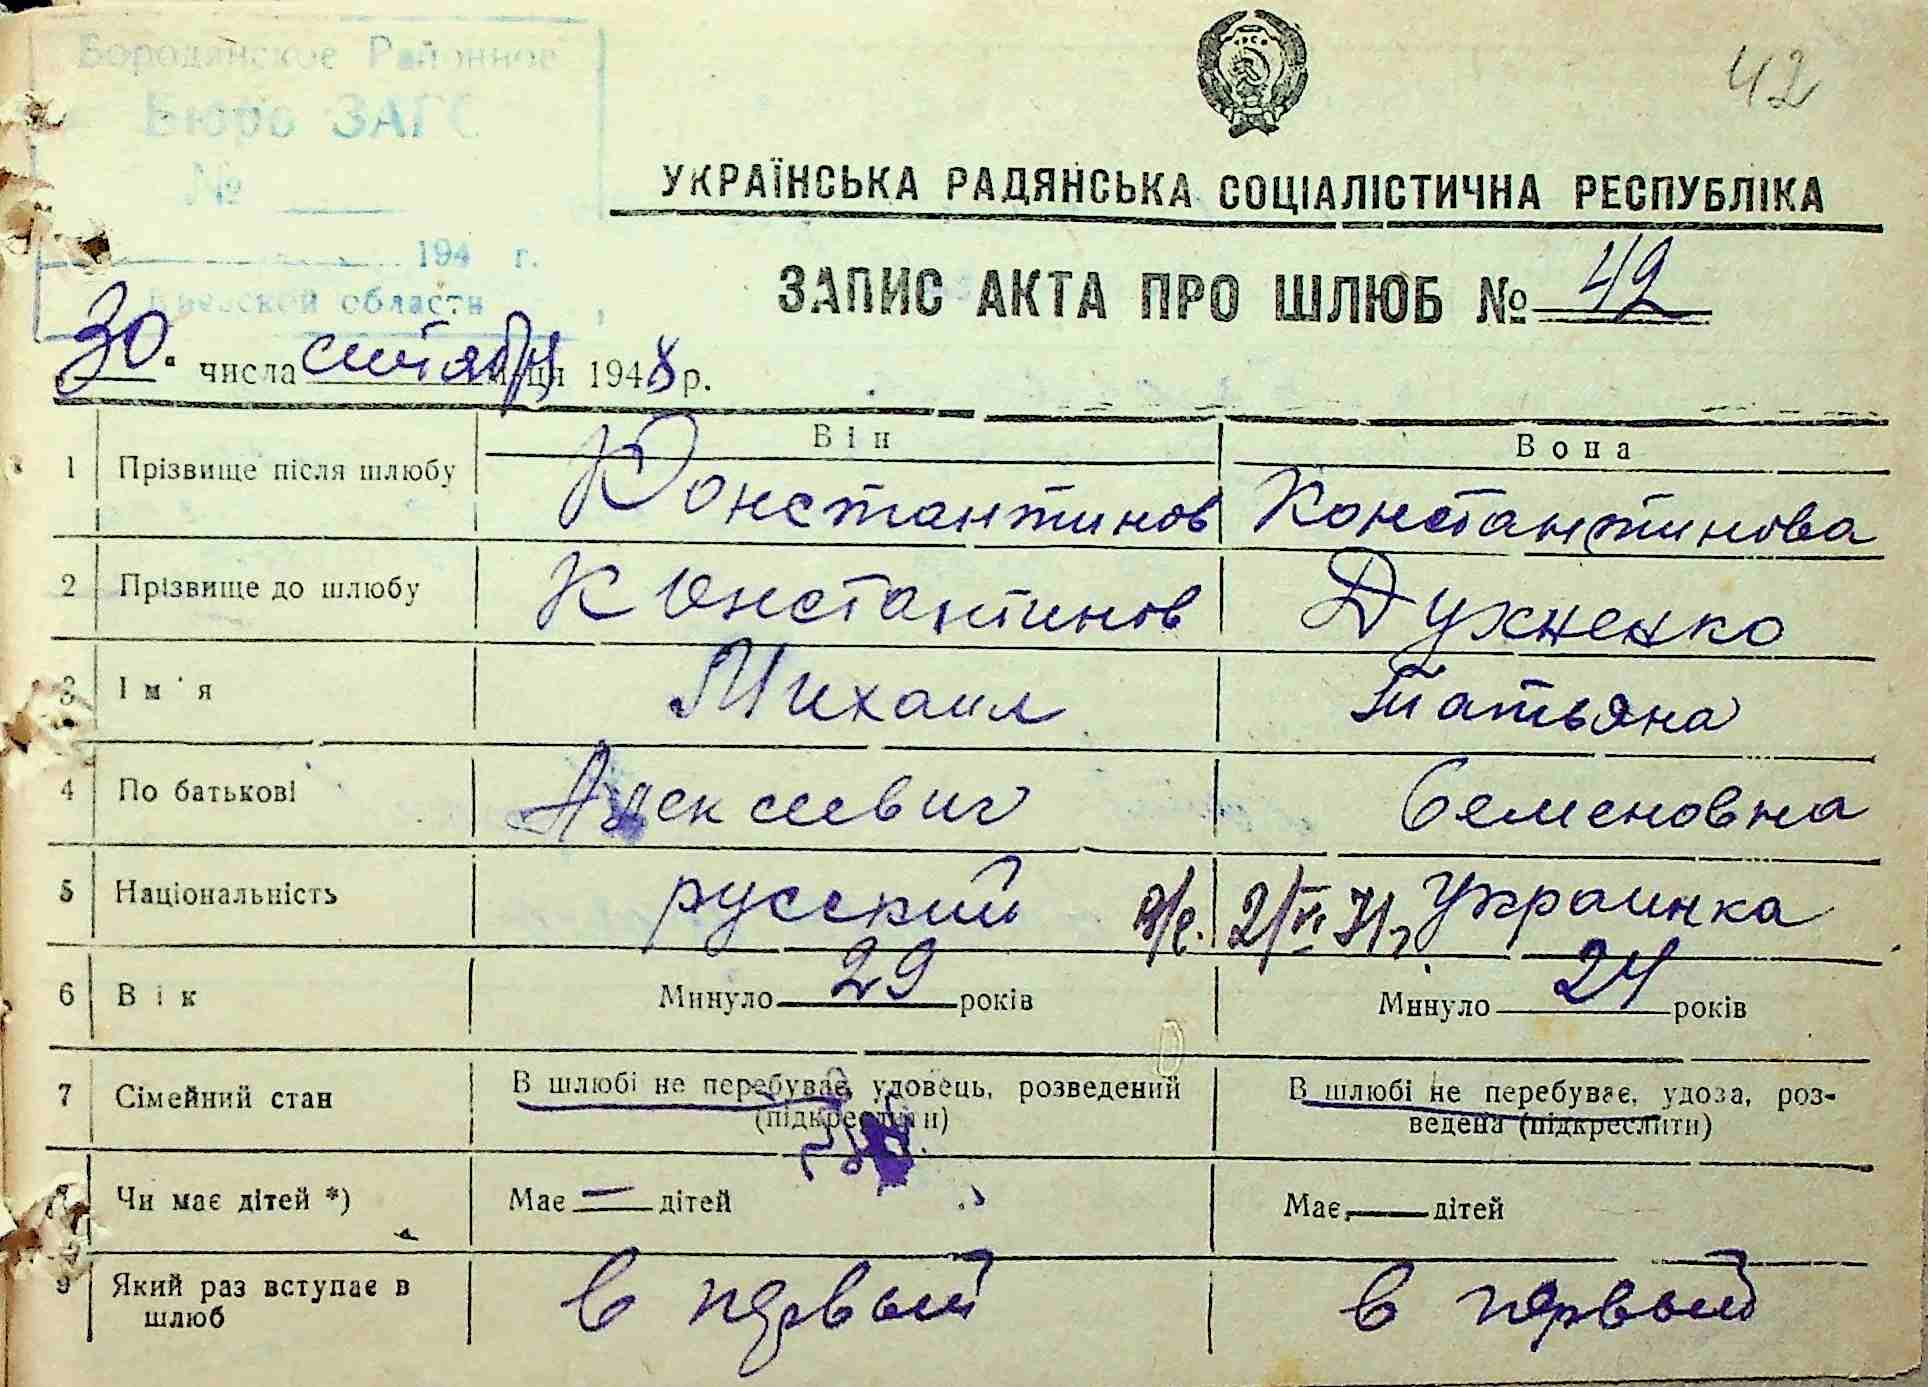 Бородянское Районное
42
Бюро ЗАГС
№
УКРАЇНСЬКА РАДЯНСЬКА СОЦІАЛІСТИЧНА РЕСПУБЛІКА
194 г.
Киевской области
ЗАПИС АКТА ПРО ШЛЮБ № 42
"30" числа сентября м-ця 1948 р.
Він Вона
1 Прізвище після шлюбу Константинов Константинова
2 Прізвище до шлюбу Константинов Духненко
3 Ім'я Михаил Татьяна
4 По батькові Алексеевич Семеновна
5 Національність русский 2/VI 71г украинка
6 Вік Минуло 29 років Минуло 24 років
7 Сімейний стан В шлюбі не перебуває, удовець, розведений В шлюбі не перебуває, удова, роз-
(підкреслити) ведена (підкреслити)
8 Чи має дітей *) Має — дітей Має — дітей
9 Який раз вступає в в первый в первый
шлюб